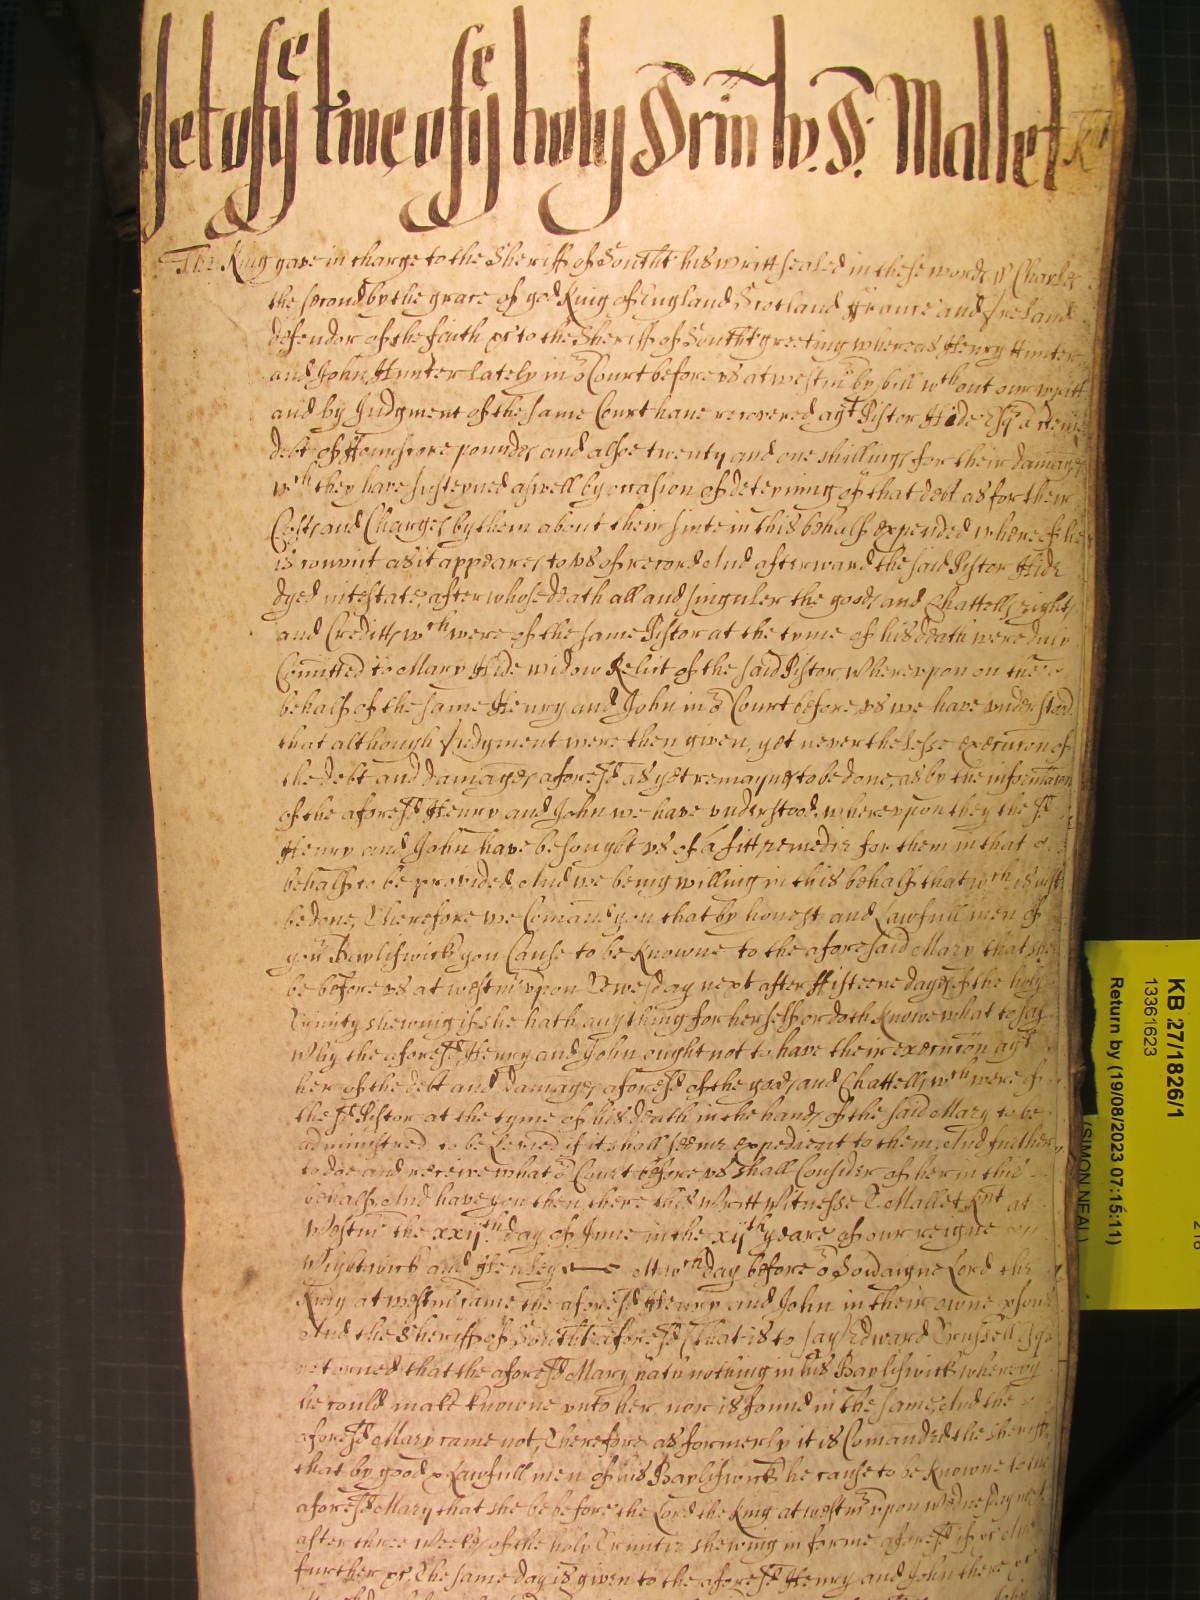 yet of ye tyme of ye holy Trin. by. T. Mallet Knt
The King gave in charge to the Sheriff of Southt his writt sealed in these words, Charles
the second by the grace of god King of England Scotland ffrance and Ireland
defendor of the faith &c to the Sheriff of Southt greeting whereas Henry Hunter
and John Hunter lately in or Court before us at westmr by bill wthout our writt
and by Judgment of the same Court have recovered agt Pistor Hide Esqr a certeine
debt of ffourscore poundes and alsoe twenty and one shillinges for their damages
wch they have susteyned aswell by occasion of deteyning of that debt as for their
Costs and Charges by them about their suite in this behalf expended whereof he
is convict as it appeares to us of record And afterward the said Pistor Hide
dyed intestate, after whose death all and singuler the goods and Chattells rights
and Creditts wch were of the same Pistor at the tyme of his death were duly
Comitted to Mary Hide widow Relict of the said Pistor, whereupon on the
behalf of the same Henry and John in or Court before us we have understood
that although Judgment were then given, yet neverthelesse execucion of
the debt and damages aforesd as yet remaynes to be done, as by the informacion
of the aforesd Henry and John we have understood, whereupon they the sd
Henry and John have besought us of a fitt remedie for them in that
behalf to be provided, And we being willing in this behalf that wch is iust
be done, Therefore we Comand you that by honest and Lawfull men of
yor Baylifwick you Cause to be knowne to the aforesaid Mary that she
be before us at westmr upon Tewesday next after ffifteene dayes of the holy
Trinity shewing if she hath any thing for herself or doth knowe what to say
why the aforesd Henry and John ought not to have their execucon agt
her of the debt and damages aforesd of the goods and Chattells wch were of
the sd Pistor at the tyme of his death in the hands of the said Mary to be
administred to be Levied if it shall seeme expedient to them, And further
to doe and receive what or Court before us shall Consider of her in this
behalf, And have you then there this writt Witnesse T Mallet knt at
Westmr the xxijth day of June in the xijth yeare of our reigne
Wightwick and Henley At wch day before or Soveraigne Lord the
King at westmr came the aforesd Henry and John in their owne psons
And the Sheriff of Southt aforesd (That is to say) Edward Esqr
retorned that the aforesd Mary hath nothing in his Baylifwick whereby
he could make knowne unto her nor is found in the same, And the
aforesd Mary came not, Therefore as formerly it is Comanded the Sheriff
that by good & Lawfull men of his Baylifwick he cause to be knowne to the
aforesd Mary that she be before the Lord the King at westmr upon wednesday next
after three Weekes of the holy Trinitie shewing in forme aforesd if &c And
further &c The same day is given to the aforesd Henry and John there &c
KB 27/1826/1
13361623
Return by (19/08/2023 07:15:11)
(SIMON NEAL)